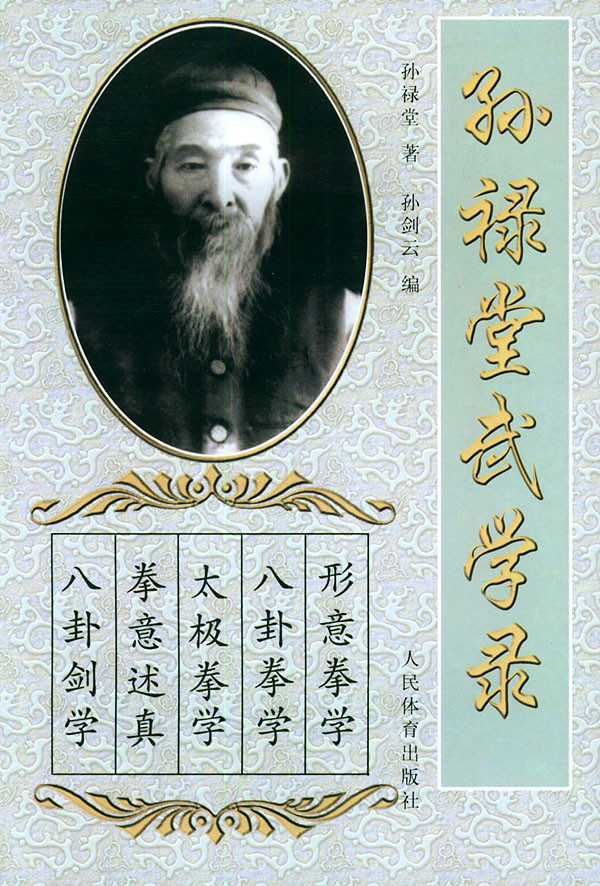 孙禄堂武学录
孙禄堂 著 孙剑云 编
形意拳学
八卦拳学
太极拳学
拳意述真
八卦剑学
人民体育出版社